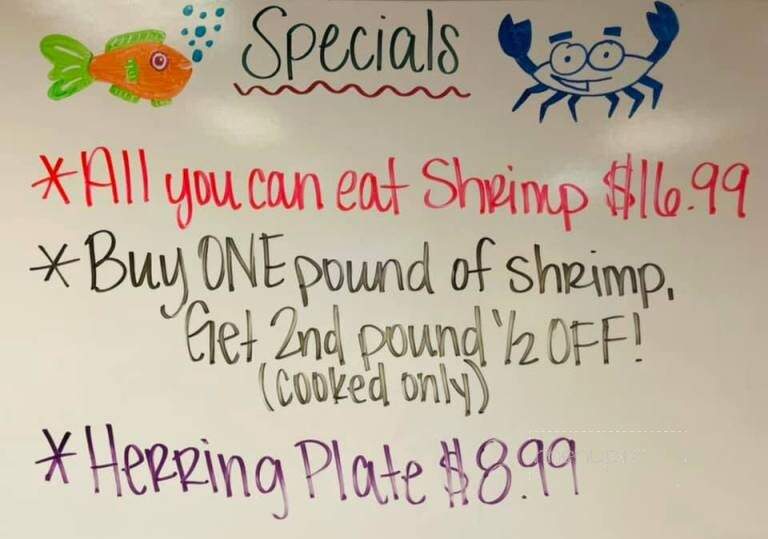 Specials
*All you can eat Shrimp $16.99
*Buy ONE pound of shrimp,
Get 2nd pound 1/2 OFF!
(cooked only)
*Herring Plate $8.99